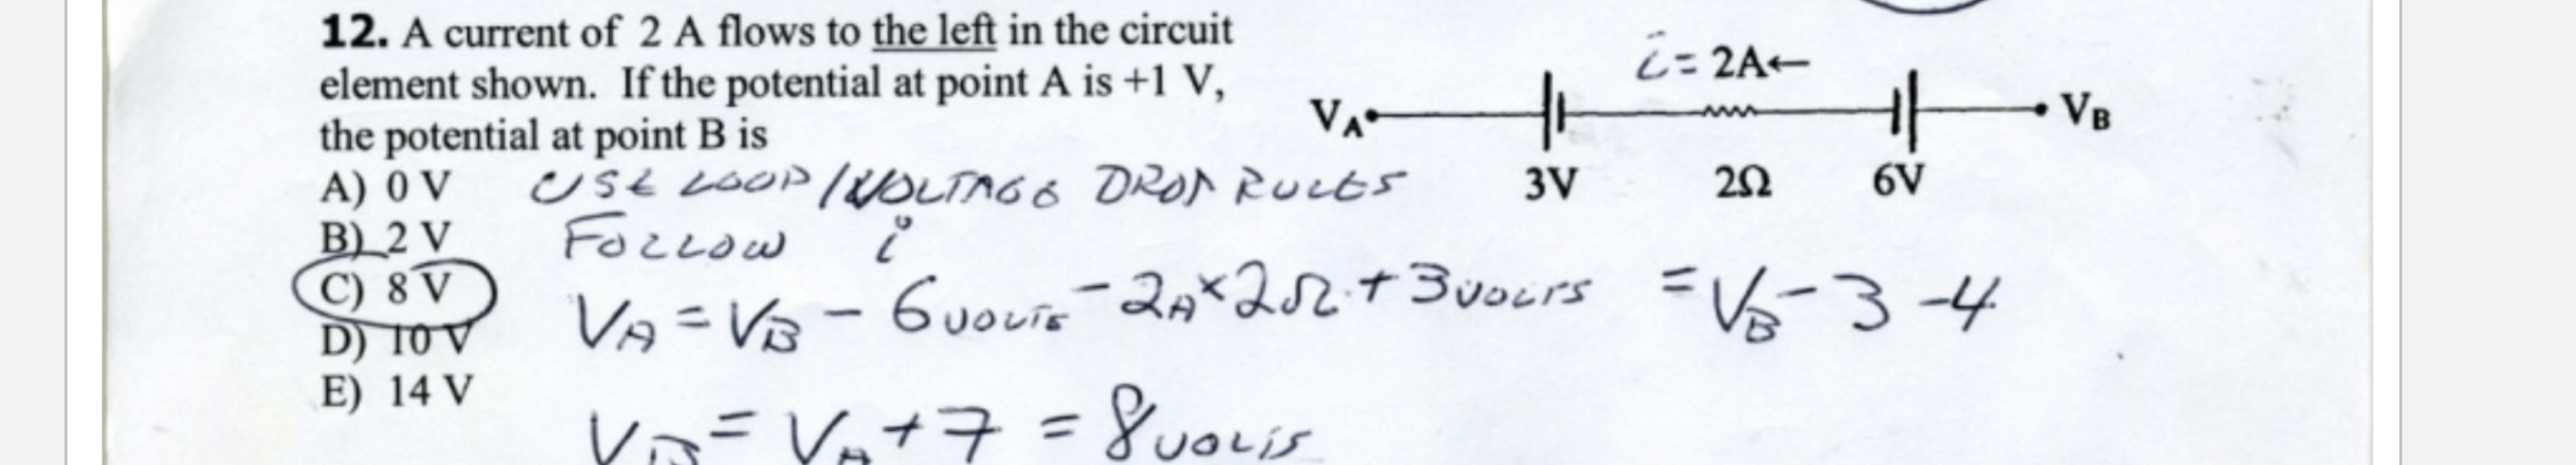 12. A current of 2 A flows to the left in the circuit
element shown. If the potential at point A is +1 V,
the potential at point B is
A) 0 V
B) 2 V
C) 8 V
D) 10 V
E) 14 V
i = 2A←
VA
VB
3V
2Ω
6V
USE LOOP/VOLTAGE DROP RULES
FOLLOW i
VA = VB - 6 VOLTS - 2A × 2Ω + 3 VOLTS = VB - 3 - 4
VB = VA + 7 = 8 VOLTS